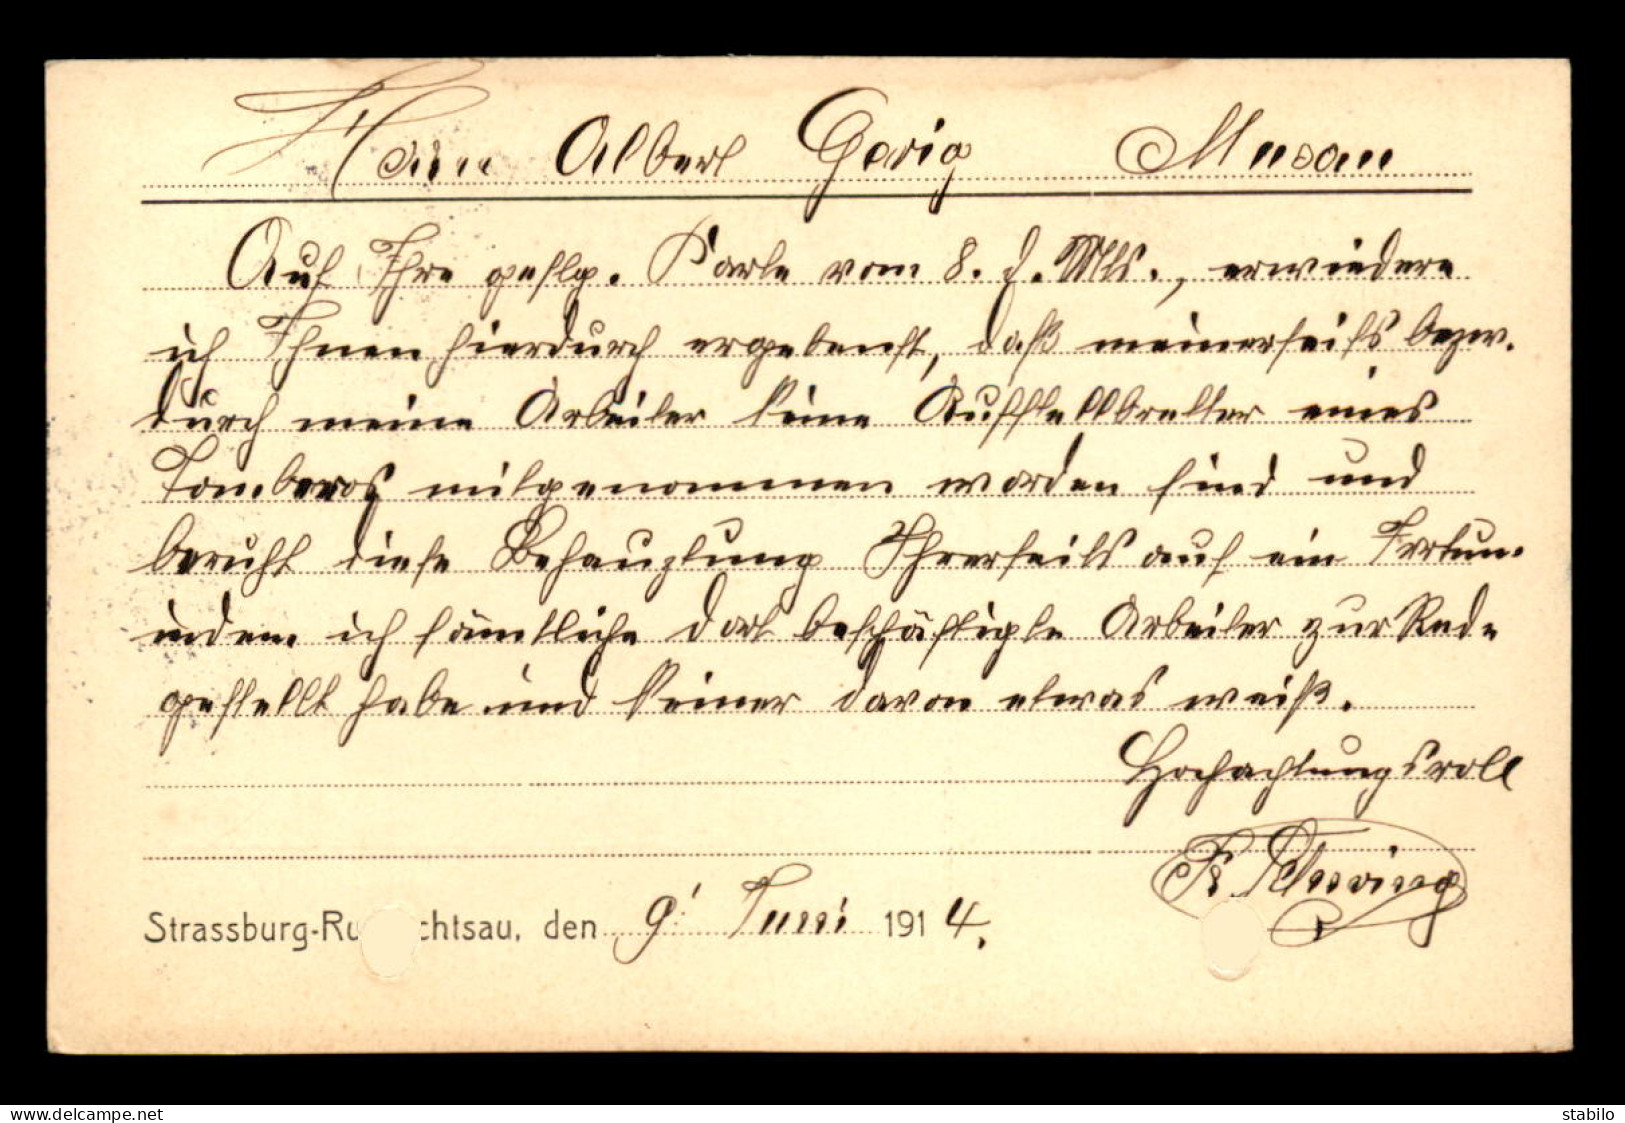 Herrn Albert Gerig Musau
Auf Ihre geflg. Karte vom 8. d. Mts., erwiedere
ich Ihnen hierdurch ergebenst, daß meinerseits bezw.
durch meine Arbeiter keine Aufstellbretter eines
mitgenommen worden sind und
beruht diese Behauptung Ihrerseits auf ein Irrtum.
indem ich sämtliche dort beschäftigte Arbeiter zur Rede
gestellt habe und keiner davon etwas weiß.
Hochachtungsvoll
Strassburg-Ru chtsau, den 9' Juni 1914.
www.delcampe.net
stabilo